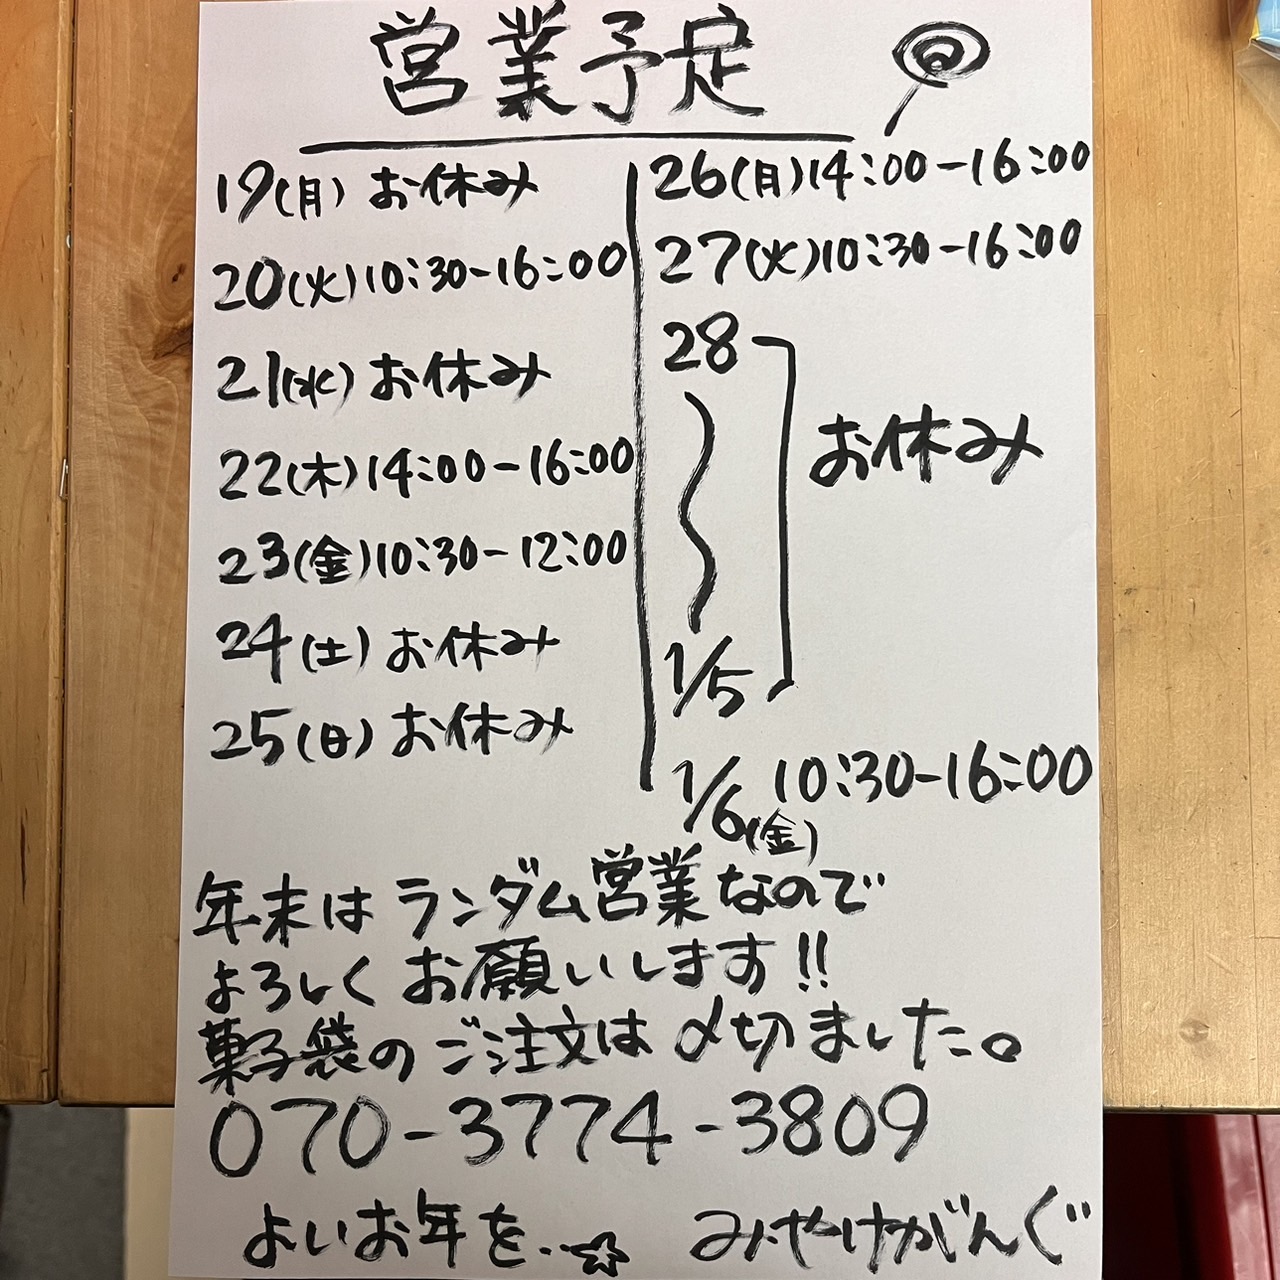 営業予定
19(月) お休み
20(火)10:30-16:00
21(水) お休み
22(木)14:00-16:00
23(金)10:30-12:00
24(土) お休み
25(日) お休み
26(月)14:00-16:00
27(火)10:30-16:00
28
〜
1/5
お休み
1/6(金) 10:30-16:00
年末はランダム営業なので
よろしくお願いします!!
菓子袋のご注文は〆切ました。
070-3774-3809
よいお年を..☆ みやけがんぐ